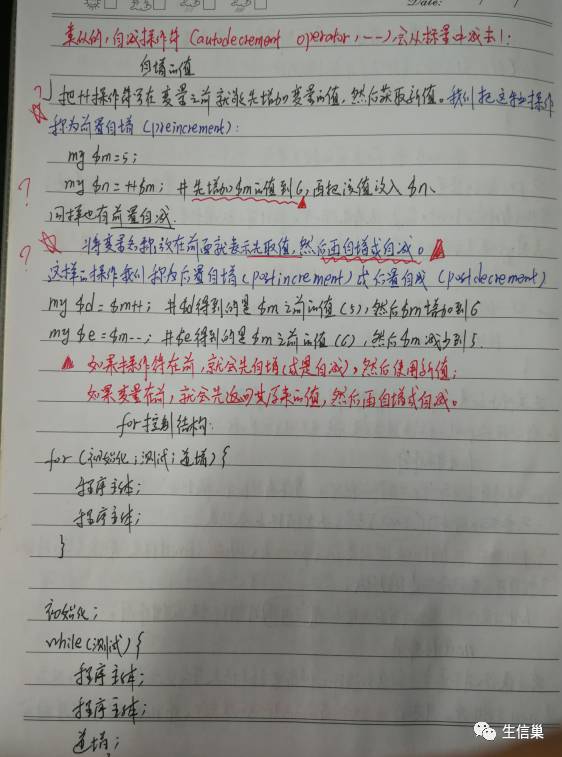 Date:
类似的,自减操作符(autodecrement operator,--),会从标量中减去1:
自增的值
? 」把++操作符写在变量之前就能先增加变量的值,然后获取新值。我们把这种操作
称为前置自增(preincrement):
my $m=5;
? my $n=++$m; #先增加$m的值到6,再把该值放入$n、
同样也有前置自减.
? 将变量名称放在前面就表示先取值,然后再自增或自减。
这样的操作我们称为后置自增(postincrement)或后置自减(postdecrement)
my $d=$m++; #$d得到的是$m之前的值(5),然后$m增加到6
my $e=$m--; #$e得到的是$m之前的值(6),然后$m减少到5.
如果操作符在前,就会先自增(或是自减),然后使用新值;
如果变量在前,就会先返回其原来的值,然后再自增或自减。
for控制结构:
for(初始化;测试;递增){
程序主体;
程序主体;
}
初始化;
while(测试){
程序主体;
程序主体;
递增;
生信巢